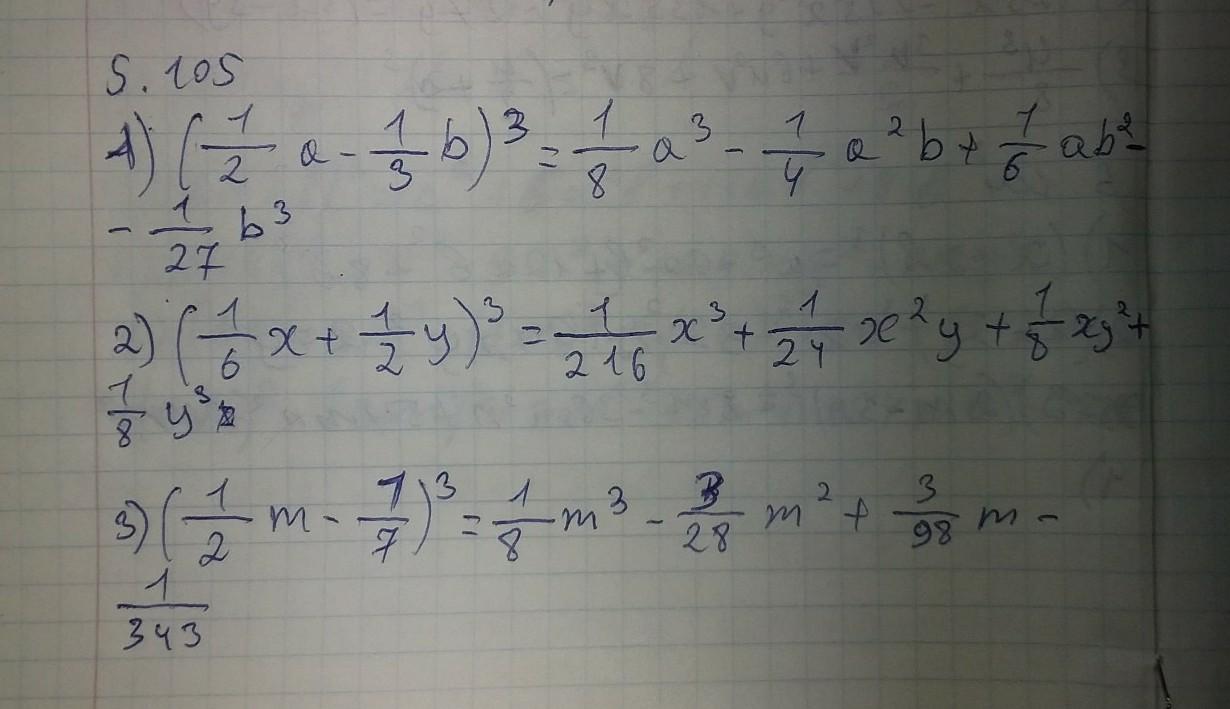 5. 105
1) (1/2 a - 1/3 b)³ = 1/8 a³ - 1/4 a²b + 1/6 ab² -
- 1/27 b³
2) (1/6 x + 1/2 y)³ = 1/216 x³ + 1/24 x²y + 1/8 xy² +
1/8 y³
3) (1/2 m - 1/7)³ = 1/8 m³ - 3/28 m² + 3/98 m -
1/343